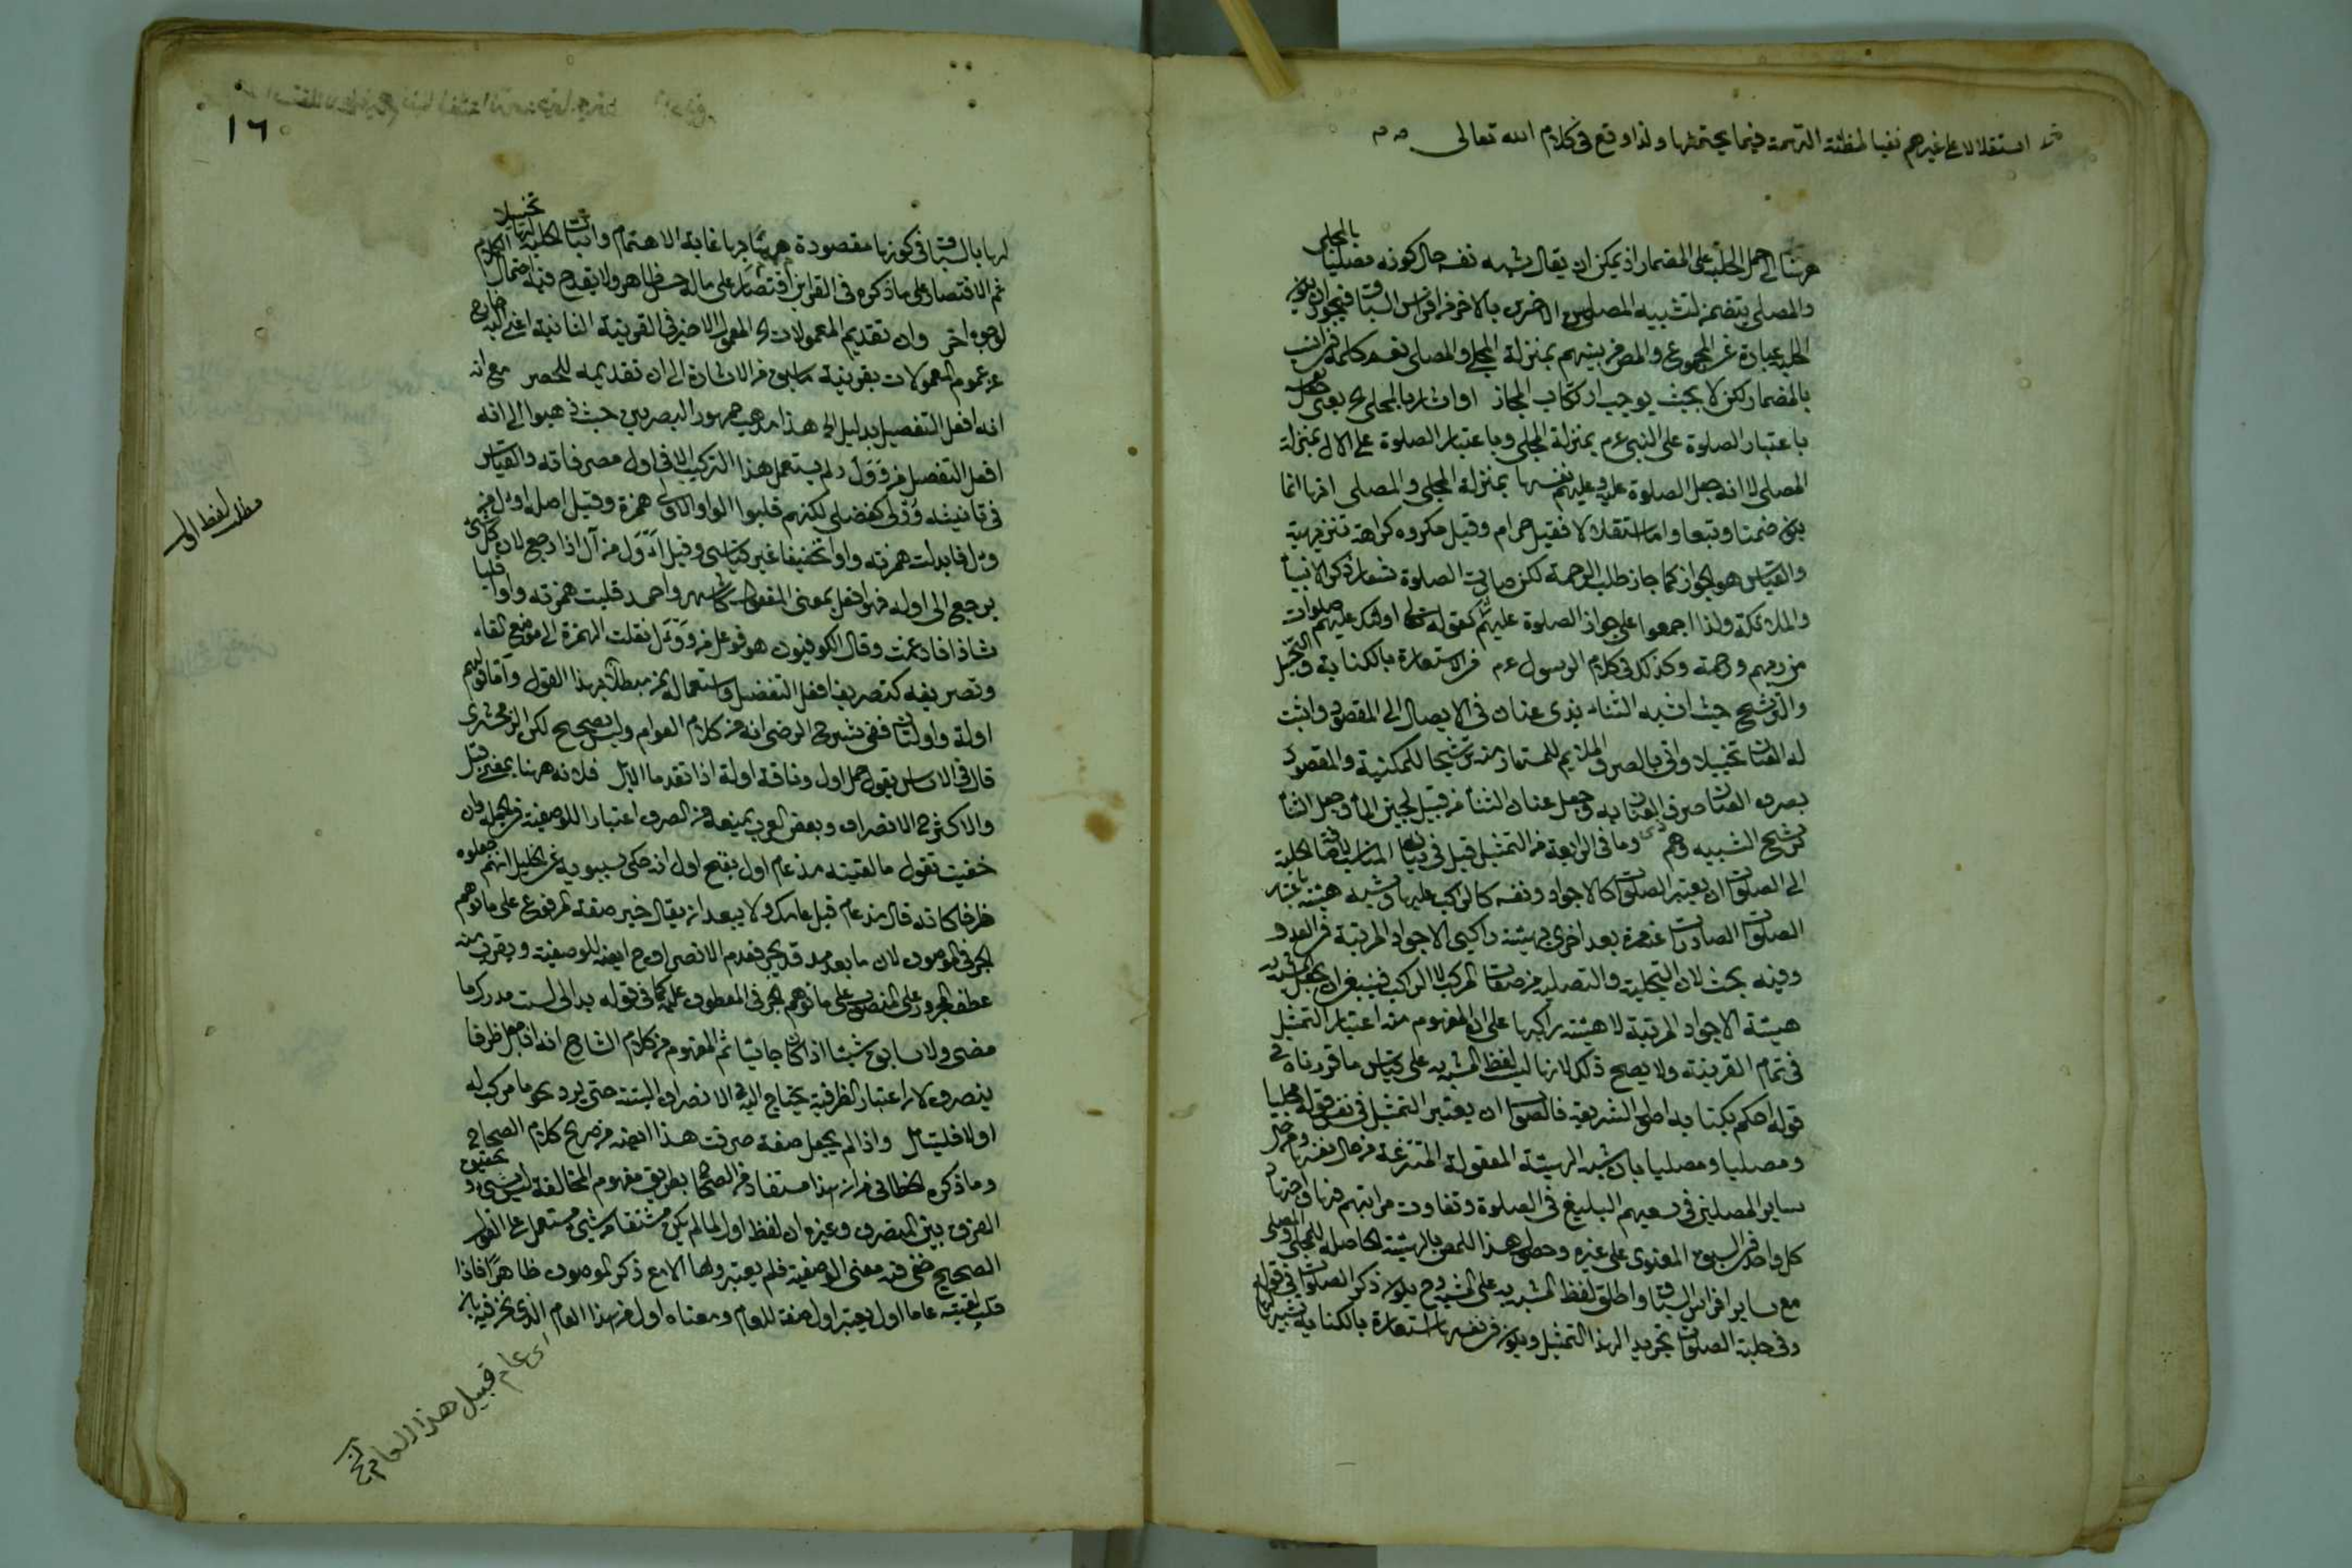 استقلالا على غيرهم نفيا لمظنة التهمة فيما يحتمها ولذا وقع فى كلام الله تعالى
ههنا الى حمل الحلبة على المضمار اذ يمكن ان يقال شبه نفسه حال كونه مصليا بالمجلى
والمصلى يتضمن تشبيه المصلين الاخرين بالاخر من افراس السباق فيجوز ان يكون
الحلبة عبارة عن المجموع والمص من بينهم بمنزلة المجلى والمصلى نعم كلمة فى انسب
بالمضمار لكن لا بحيث يوجب ارتكاب المجاز او اشار بالمجلى الخ يعنى جعل نفسه
باعتبار الصلوة على النبى عم بمنزلة المجلى وباعتبار الصلوة على الال بمنزلة
المصلى لا انه جعل الصلوة عليه وعليهم نفسها بمنزلة المجلى والمصلى انها انما
يكون ضمنا وتبعا واما استقلالا فقيل حرام وقيل مكروه كراهة تنزيهية
والقياس هو الجواز كما جاز طلب الرحمة لكن صارت الصلوة شعار ذكر الانبياء
والملائكة ولذا اجمعوا على جواز الصلوة عليهم كقوله تعالى اولئك عليهم صلوات
من ربهم ورحمة وكذلك فى كلام الرسول عم من الاستعارة بالكناية والتخييل
والترشيح حيث شبه الثناء بذى عنان فى الايصال الى المقصود واثبت
له العنان تخييلا واتى بالصرف الملايم للمستعار منه ترشيحا للمكنية والمقصود
بصرف العنان صرف العناية وجعل عنان الثناء من قبيل لجين الماء وجعل الثناء
ترشيح التشبيه وهم وما فى الرابعة من التمثيل قيل فى بيانه المناسب لاضافة الحلبة
الى الصلوات ان يعتبر الصلوات كالاجواد ونفسه كالراكب عليها وشبه هيئته باعتبار
الصلوات الصادرات عنه مرة بعد اخرى بهيئة راكبى الاجواد المرتبة فى العدو
وفيه بحث لان التجلية والتصلية من صفات المركب لا الراكب فينبغى ان يجعل المشبه به
هيئة الاجواد المرتبة لا هيئة راكبها على ان المفهوم منه اعتبار التمثيل
فى تمام القرينة ولا يصح ذلك لانها ليست لفظ المشبه به على قياس ما قررناه فى
قوله احكم بكتابه اصول الشريعة فالصواب ان يعتبر التمثيل فى نفس قوله مجليا
ومصليا ومصليا بان شبه الهيئة المعقولة المنتزعة من حال نفسه ومن حال
ساير المصلين فى سعيهم البليغ فى الصلوة وتفاوت مراتبهم فيها واجتهاد
كل واحد فى السبق المعنوى على غيره وحصول هذا للمص بالهيئة الحاصلة للمجلى والمصلى
مع ساير افراس السباق واطلق لفظ المشبه به على المشبه وح يكون ذكر الصلوات فى قوله
وفى حلبة الصلوات تجريدا لهذا التمثيل ويكون فى نفسها استعارة بالكناية تشبيها
١٦
لها بالسباق فى كونها مقصودة مهتما بها غاية الاهتمام واثبات الحلبة لها تخييلا
ثم الاقتصار على ما ذكره فى القراين اقتصار على ماله حسن ظاهر ولا يقدح فيه احتمال الكلام
لوجوه اخر وان تقديم المعمولات الخ المعمول الاخير فى القرينة الثانية اعنى اليه خارج
عن عموم المعمولات بقرينة ما سبق من الاشارة الى ان تقديمه للحصر مع انه
انه افعل التفضيل بدليل الخ هذا مذهب جمهور البصريين حيث ذهبوا الى انه
افعل التفضيل من وَوَلَ ولم يستعمل هذا التركيب الا فى اول ومصرفاته والقياس
فى تانيثه وُوْلى كفضلى لكنهم قلبوا الواو الاولى همزة وقيل اصله اوءل من
وءل فابدلت همزته واوا تخفيفا غير قياسى وقيل اءول من آل اذا رجع لان كل شئ
يرجع الى اوله فهو افعل بمعنى المفعول كاشهر واحمد قلبت همزته واوا قلبا
شاذا فادغمت وقال الكوفيون هو فوعل من ووءل نقلت الهمزة الى موضع الفاء
وتصريفه كتصريف افعل التفضيل واستعماله بمن مبطلان لهذا القول واما قولهم
اولة واولتان ففى شرح الرضى انه من كلام العوام وليس بصحيح لكن الزمخشرى
قال فى الاساس يقول جمل اول وناقة اولة اذا تقدما الابل فلانه ههنا بمعنى قبل
والاكثر ح الانصراف وبعض العرب يمنعه من الصرف اعتبارا للوصفية فى الجملة وان
خفيت تقول ما لقيته مذ عام اول بفتح اول انه حكى سيبويه عن الخليل انهم جعلوه
ظرفا كانه قال مذ عام قبل عامك ولا يبعد ان يقال خبر صفة المرفوع على ما توهم
الجر فى الموصوف لان ما بعد مذ قد يجر فعدم الانصراف ح ايضا للوصفية ويقرب منه
عطف المجرور على المنصوب على ما توهم الجر فى المعطوف عليه كما فى قوله بدا لى لست مدرك ما
مضى ولا سابق شيئا اذا كان جائيا ثم المفهوم من كلام الشارح انه اذا جعل ظرفا
ينصرف لان اعتبار الظرفية يحتاج اليه الانصراف البتة حتى يرد نحو ما تركب له
اولا فليتامل واذا لم يجعل صفة صرفت هذا ايضا من صريح كلام الصحاح
وما ذكره الخطائى من ان هذا مستفاد من الصحاح بطريق مفهوم المخالفة ليس بشئ وتحقيق
الفرق بين المنصرف وغيره ان لفظ اول لما لم يكن مشتقا من شئ مستعمل على القول
الصحيح خفى فيه معنى الوصفية فلم يعتبروها الا مع ذكر الموصوف ظاهرا فاذا
قلت لقيته عاما اول يعتبر اول صفة للعام ومعناه اول من هذا العام الذى نحن فيه بان
اى عام قبيل هذا العام
مطلب لفظ اول